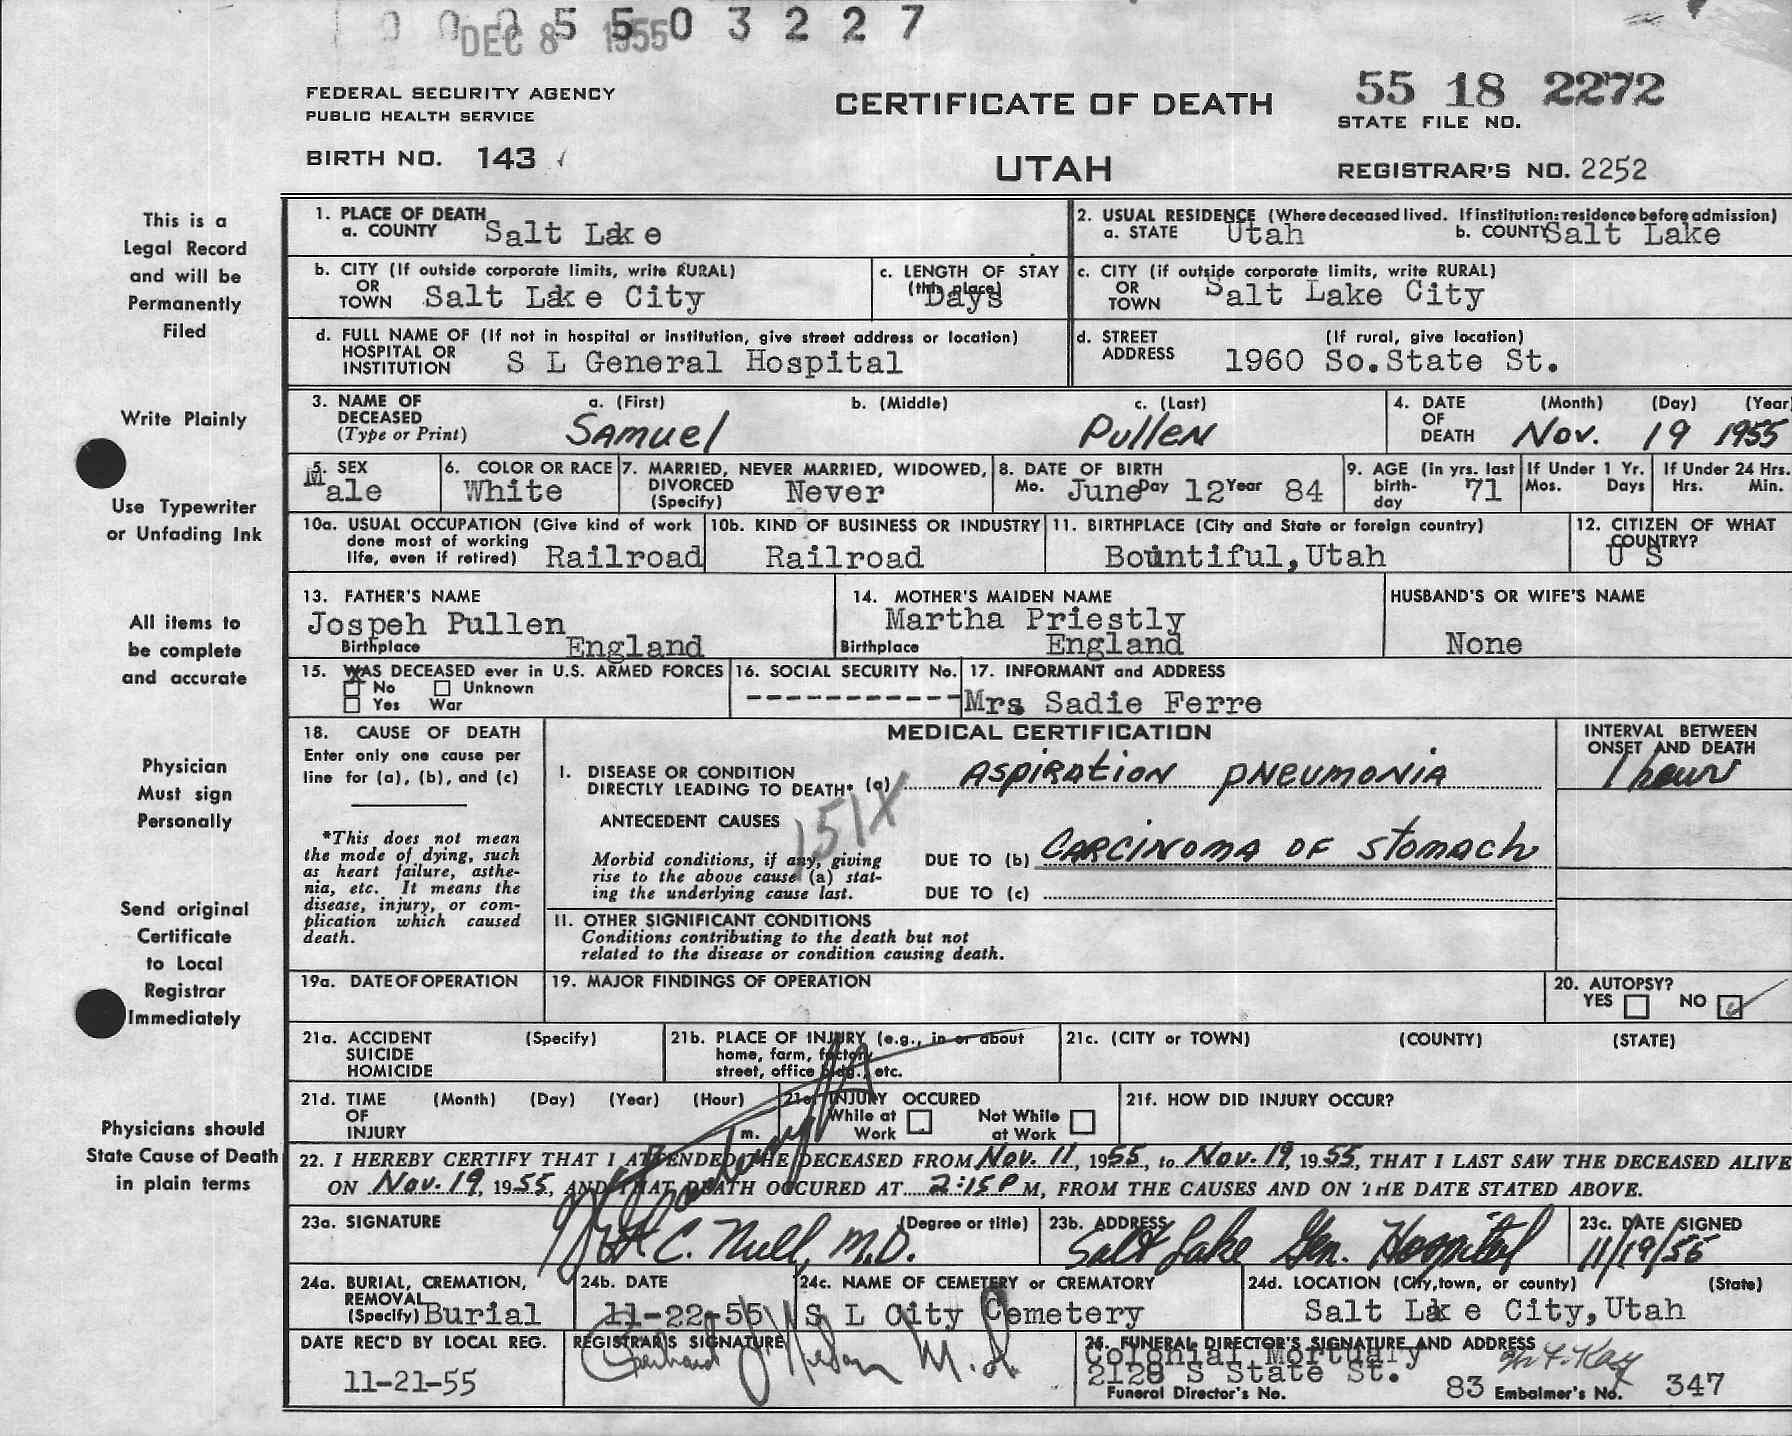 0 0 0 5 5 0 3 2 2 7
DEC 8 1955
FEDERAL SECURITY AGENCY
PUBLIC HEALTH SERVICE
BIRTH NO. 143
CERTIFICATE OF DEATH
UTAH
55 18 2272
STATE FILE NO.
REGISTRAR'S NO. 2252
This is a
Legal Record
and will be
Permanently
Filed
Write Plainly
Use Typewriter
or Unfading Ink
All items to
be complete
and accurate
Physician
Must sign
Personally
Send original
Certificate
to Local
Registrar
Immediately
Physicians should
State Cause of Death
in plain terms
1. PLACE OF DEATH
a. COUNTY Salt Lake
2. USUAL RESIDENCE (Where deceased lived. If institution: residence before admission)
a. STATE Utah b. COUNTY Salt Lake
b. CITY (If outside corporate limits, write RURAL)
OR
TOWN Salt Lake City
c. LENGTH OF STAY
(this place)
Days
c. CITY (if outside corporate limits, write RURAL)
OR
TOWN Salt Lake City
d. FULL NAME OF (If not in hospital or institution, give street address or location)
HOSPITAL OR
INSTITUTION S L General Hospital
d. STREET (If rural, give location)
ADDRESS 1960 So.State St.
3. NAME OF DECEASED
(Type or Print)
a. (First) b. (Middle) c. (Last)
Samuel Pullen
4. DATE OF DEATH
(Month) (Day) (Year)
Nov. 19 1955
5. SEX
Male
6. COLOR OR RACE
White
7. MARRIED, NEVER MARRIED, WIDOWED,
DIVORCED
(Specify) Never
8. DATE OF BIRTH
Mo. June Day 12 Year 84
9. AGE (in yrs. last
birth-
day 71
If Under 1 Yr.
Mos. Days
If Under 24 Hrs.
Hrs. Min.
10a. USUAL OCCUPATION (Give kind of work
done most of working
life, even if retired) Railroad
10b. KIND OF BUSINESS OR INDUSTRY
Railroad
11. BIRTHPLACE (City and State or foreign country)
Bountiful,Utah
12. CITIZEN OF WHAT
COUNTRY?
U S
13. FATHER'S NAME
Jospeh Pullen
Birthplace England
14. MOTHER'S MAIDEN NAME
Martha Priestly
Birthplace England
HUSBAND'S OR WIFE'S NAME
None
15. WAS DECEASED ever in U.S. ARMED FORCES
X
No Unknown
Yes War
16. SOCIAL SECURITY No.
-----------
17. INFORMANT and ADDRESS
Mrs Sadie Ferre
18. CAUSE OF DEATH
Enter only one cause per
line for (a), (b), and (c)
*This does not mean
the mode of dying, such
as heart failure, asthe-
nia, etc. It means the
disease, injury, or com-
plication which caused
death.
MEDICAL CERTIFICATION
INTERVAL BETWEEN
ONSET AND DEATH
I. DISEASE OR CONDITION
DIRECTLY LEADING TO DEATH* (a) Aspiration pneumonia
1 hour
151X
ANTECEDENT CAUSES
Morbid conditions, if any, giving
rise to the above cause (a) stat-
ing the underlying cause last.
DUE TO (b) Carcinoma of stomach
DUE TO (c)
II. OTHER SIGNIFICANT CONDITIONS
Conditions contributing to the death but not
related to the disease or condition causing death.
19a. DATE OF OPERATION
19. MAJOR FINDINGS OF OPERATION
20. AUTOPSY?
YES NO
21a. ACCIDENT (Specify)
SUICIDE
HOMICIDE
21b. PLACE OF INJURY (e.g., in or about
home, farm, factory
street, office bldg., etc.
21c. (CITY or TOWN) (COUNTY) (STATE)
21d. TIME (Month) (Day) (Year) (Hour)
OF
INJURY m.
21e. INJURY OCCURED
While at Not While
Work at Work
21f. HOW DID INJURY OCCUR?
22. I HEREBY CERTIFY THAT I ATTENDED THE DECEASED FROM Nov. 11, 1955, to Nov. 19, 1955, THAT I LAST SAW THE DECEASED ALIVE
ON Nov. 19, 1955, AND THAT DEATH OCCURED AT 2:15 P M, FROM THE CAUSES AND ON THE DATE STATED ABOVE.
23a. SIGNATURE (Degree or title)
C. Null, M.D.
23b. ADDRESS
Salt Lake Gen. Hospital
23c. DATE SIGNED
11/19/55
24a. BURIAL, CREMATION,
REMOVAL
(Specify) Burial
24b. DATE
11-22-55
24c. NAME OF CEMETERY or CREMATORY
S L City Cemetery
24d. LOCATION (City, town, or county) (State)
Salt Lake City,Utah
DATE REC'D BY LOCAL REG.
11-21-55
REGISTRAR'S SIGNATURE
M.D.
25. FUNERAL DIRECTOR'S SIGNATURE AND ADDRESS
Colonial Mortuary
2128 S State St.
Funeral Director's No. 83 Embalmer's No. 347